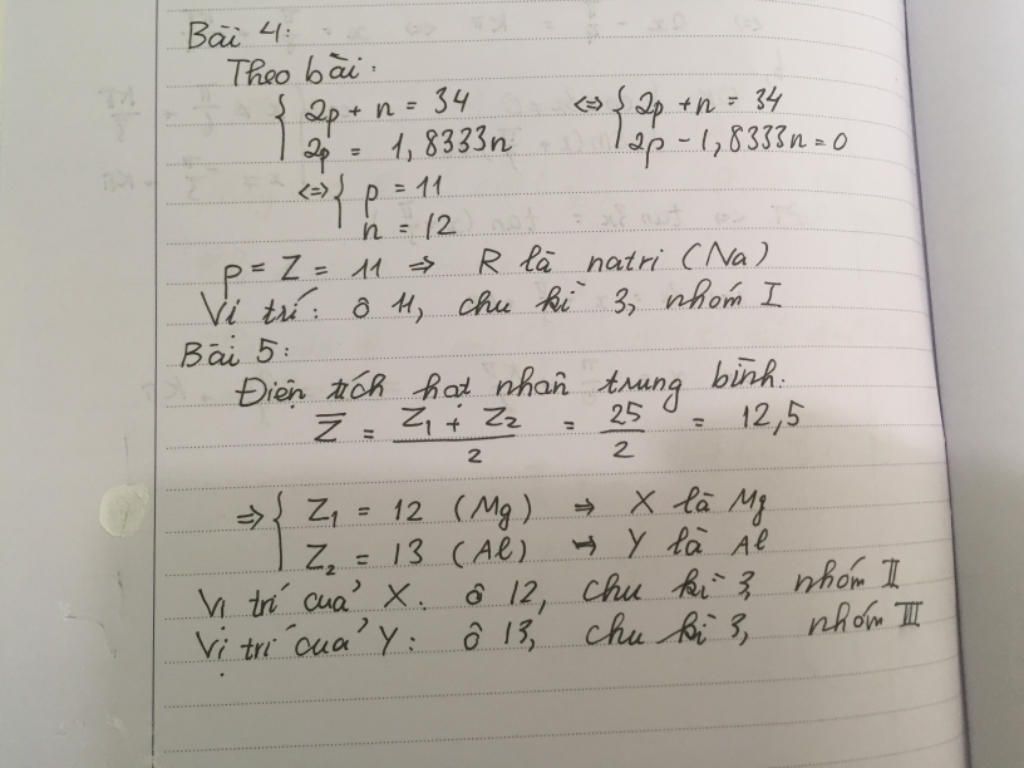 Bài 4:
Theo bài:
{ 2p + n = 34 <=> { 2p + n = 34
2p = 1,8333n 2p - 1,8333n = 0
<=> { p = 11
n = 12
p = Z = 11 => R là natri (Na)
Vị trí: ô 11, chu kì 3, nhóm I
Bài 5:
Điện tích hạt nhân trung bình:
Z̅ = (Z₁ + Z₂)/2 = 25/2 = 12,5
=> { Z₁ = 12 (Mg) => X là Mg
Z₂ = 13 (Al) => Y là Al
Vị trí của X: ô 12, chu kì 3, nhóm II
Vị trí của Y: ô 13, chu kì 3, nhóm III